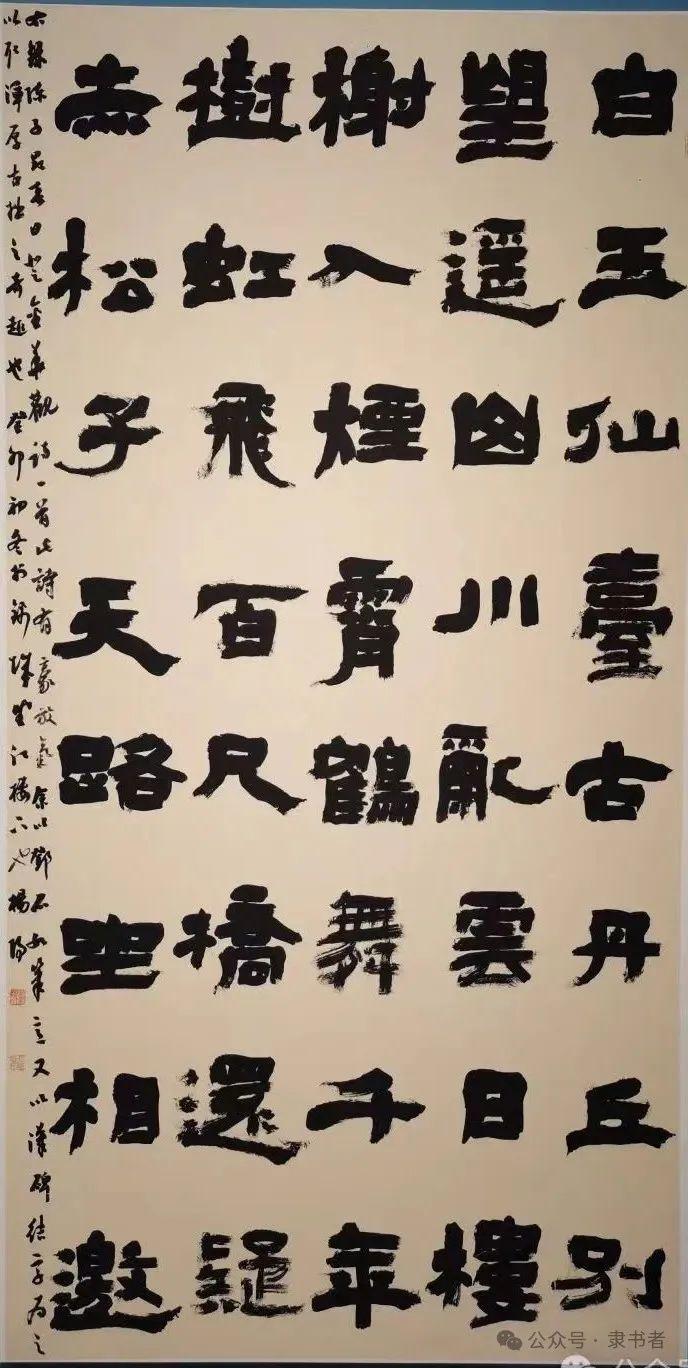 白玉仙臺古丹丘別
望遥山川亂雲日樓
榭入煙霄鶴舞千年
樹虹飛百尺橋還疑
赤松子天路坐相邀
右録陳子昂春日登金華觀詩一首此詩有豪放氣余以鄧石如筆意又以漢碑結字為之
以取渾厚古拙之奇趣也癸卯初冬於錦城望江樓下也楊
公众号·隶书者